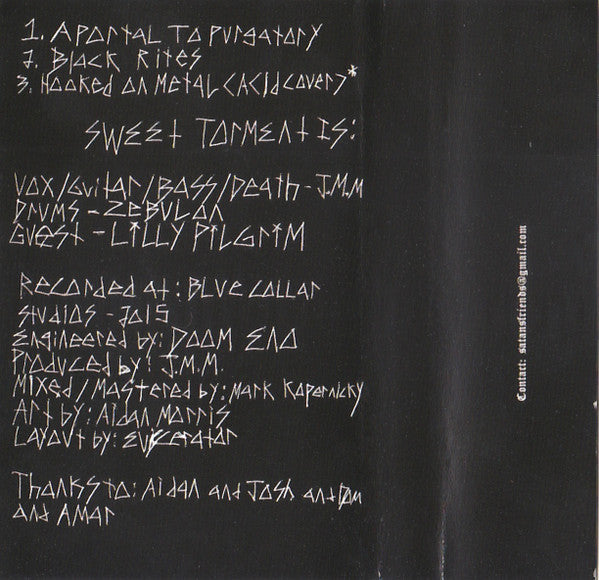 1. A Portal To Purgatory
2. Black Rites
3. Hooked on Metal (Acid cover)*
Sweet Torment Is:
Vox/Guitar/Bass/Death - J.M.M
Drums - Zebulon
Guest - Lilly Pilgrim
Recorded at: Blue Collar
Studios - 2015
Engineered by: Doom Eno
Produced by: J.M.M.
Mixed/Mastered by: Mark Kapernicky
Art by: Aidan Morris
Layout by: Eviscerator
Thanks to: Aidan and Josh and Dom
and Amar
Contact: satansfriends@gmail.com